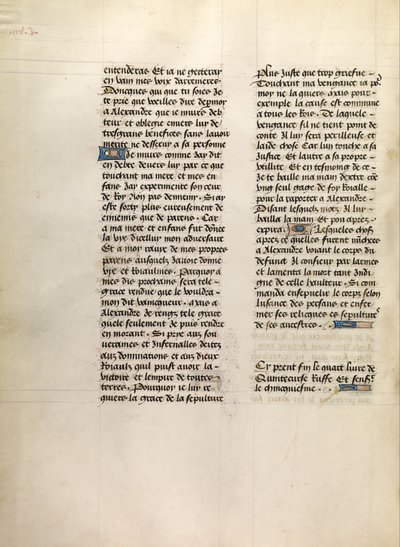 entenderas Et ia ne getteray
en vain mes voix darrenieres
Doncques qui que tu soies Je
te prie que veilles dire de moy
a Alexandre que je muirs deb
teur et obleme enuers luy de
tresgrans benefices sans lauoir
merite ne desseruy a sa personne
Je muirs comme Jay dit
en debte deuers luy par ce que
touchant ma mere et mes en
fans Jay experimente son cueur
de Roy Non pas dennemy Si ay
este forty plus eureusement de
ennemis que de parens. Car
a ma mere et enfans fut donee
la vye dicelluy mon aduersaire
Et a moy tolue de mes propres
parens ausquelz Jauoie donne
vye et Roiaulmes. Parquoy a
mes dis prochains sera tele
grace rendue que le vouldra
mon dit vaincqueur. Mais a
Alexandre de rengz tele grace
quele seulement Je puis rendre
en morant. Si prie aux sou
uerainnes et Infernalles deitez
aux dominations et aux dieux
Roiaulz quil puist auoir la
victoire et lempire de toutes
terres. Pourquoy Je luy re
quiere la grace de la sepulture
Plus Juste que trop griefue
Touchant ma vengance ia po
moy ne la quiere mais pour
exemple la cause est commune
a tous les Rois. De laquele
vengance sil ne tient point de
conte Il luy sera perilleuse et
laide chose Car lun touche a sa
Justice Et lautre a sa propre
vtilite Et en tesmoing de ce
Je te baille ma main dextre com
vng seul gaige de foy Roialle
pour la raporter a Alexandre
Disant lesquelz motz Il luy
bailla la main Et pou apres
expira. Lesqueles choses
apres ce quelles furent nuchees
a Alexandre voiant le corps du
defunct Il conseuy par larmes
et lamenta la mort tant Indi
gne de celle haulteur. Si com
manda enseuelir le corps selon
lusance des persans et enfer
mer ses relicques es sepultures
de ses ancestres.
Cy prent fin le quart liure de
Quintecurse Ruffe Et sensieut
le chincquiesme.